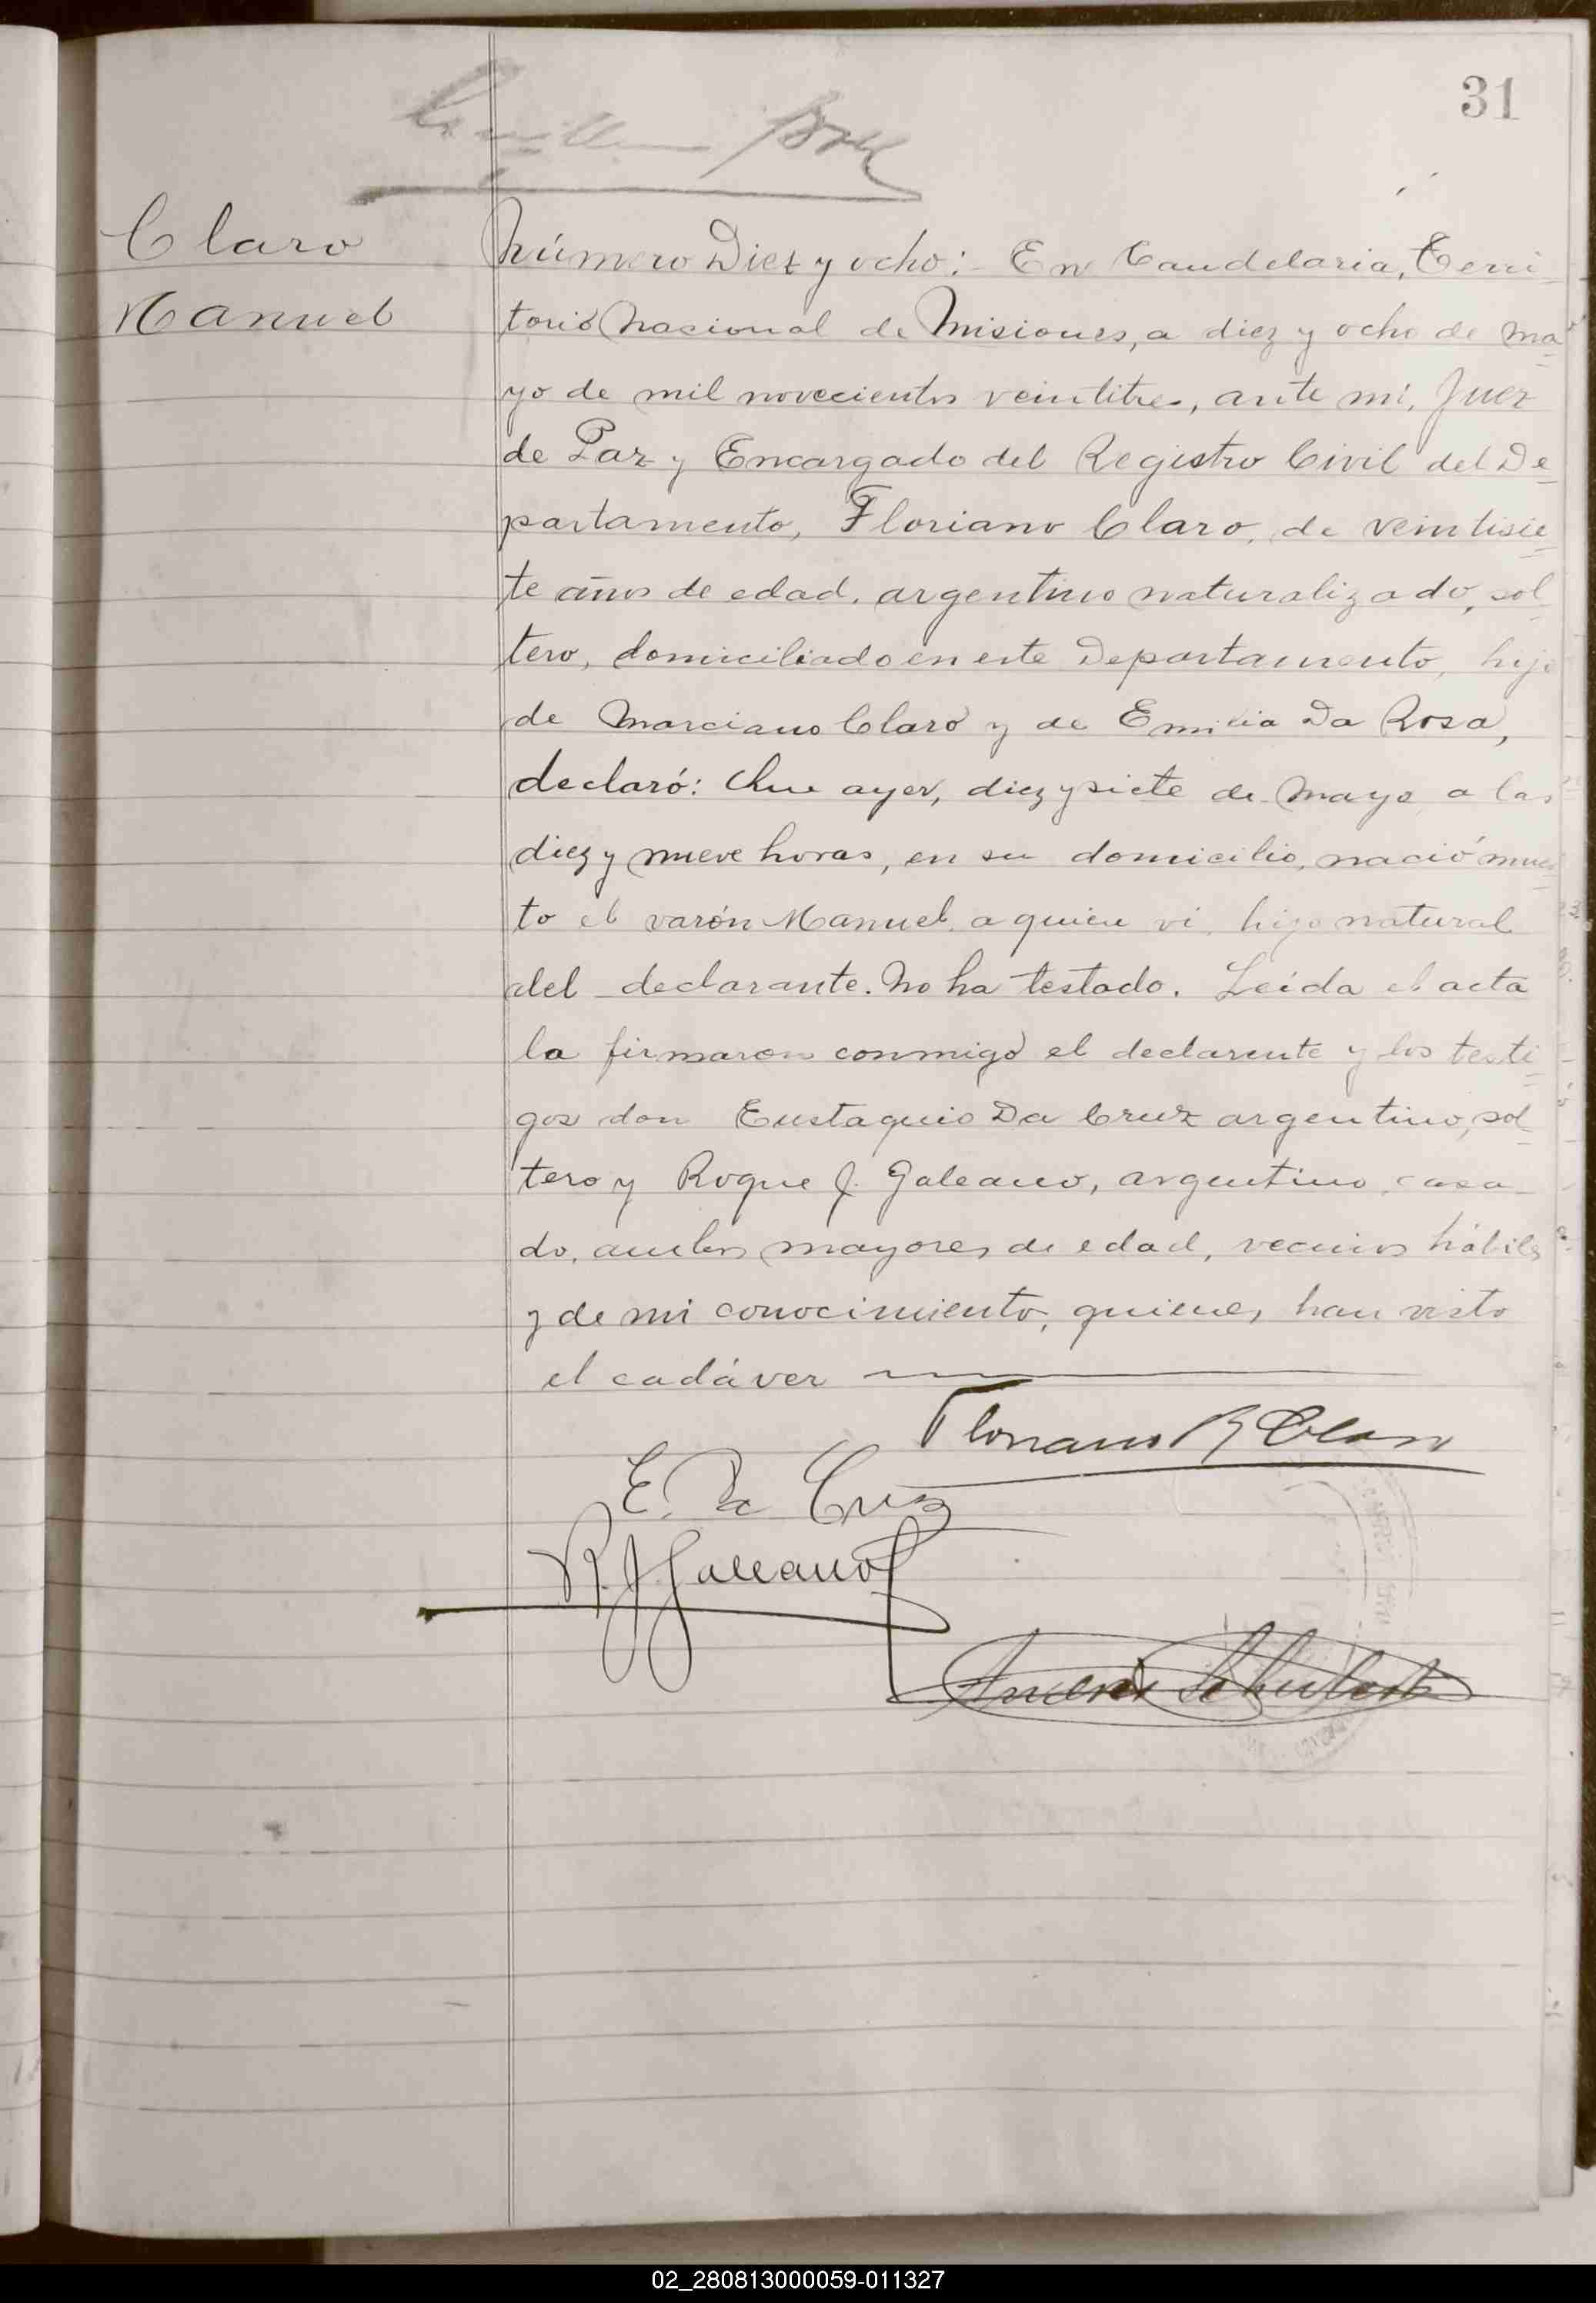 31
Claro
Manuel
Número Diez y ocho: En Candelaria, Terri
torio Nacional de Misiones, a diez y ocho de ma
yo de mil novecientos veintitres, ante mi, Juez
de Paz y Encargado del Registro Civil del De
partamento, Floriano Claro, de veintisie
te años de edad, argentino naturalizado, sol
tero, domiciliado en este Departamento, hijo
de Marciano Claro y de Emilia Da Rosa,
declaró: Que ayer, diez y siete de Mayo a las
diez y nueve horas, en su domicilio, nació muer
to el varón Manuel, a quien vi, hijo natural
del declarante. No ha testado. Leida el acta
la firmaron conmigo el declarante y los testi
gos don Eustaquio Da Cruz argentino, sol
tero y Roque J. Galeano, argentino, casa
do, ambos mayores de edad, vecinos hábiles
y de mi conocimiento, quienes han visto
el cadáver
Floriano R Claro
E. Da Cruz
R. J. Galeano
Andrés Schubert
02_280813000059-011327